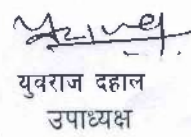 युवराज दहाल
उपाध्यक्ष